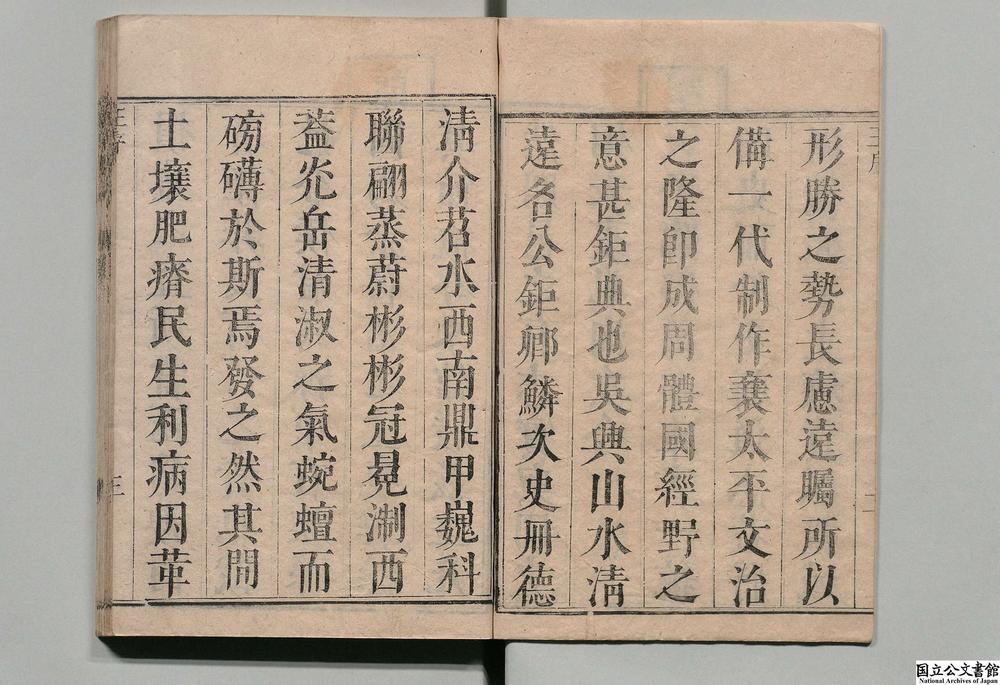 形勝之勢長慮遠矚所以
備一代制作襄太平文治
之隆卽成周體國經野之
意甚鉅典也吳興山水淸
遠名公鉅卿鱗次史冊德
淸介苕水西南鼎甲巍科
聯翩蒸蔚彬彬冠冕淛西
葢光岳清淑之氣蜿蟺而
磅礴於斯焉發之然其間
土壤肥瘠民生利病因革
三
国立公文書館
National Archives of Japan